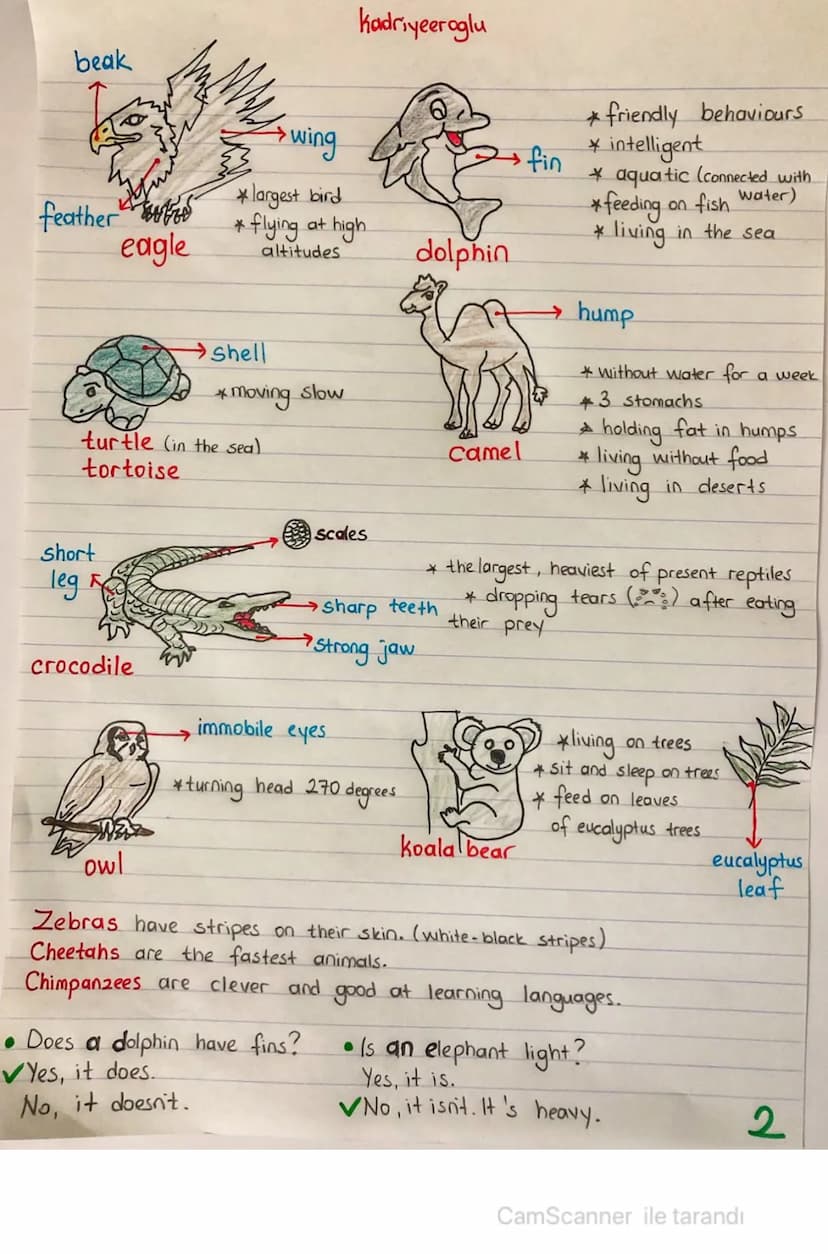 kadriyeeroglu
beak
wing
feather
eagle
* largest bird
* flying at high
altitudes
fin
dolphin
* friendly behaviours
* intelligent
* aquatic (connected with
water)
* feeding on fish
* living in the sea
shell
* moving slow
turtle (in the sea)
tortoise
hump
camel
* without water for a week
* 3 stomachs
* holding fat in humps
* living without food
* living in deserts
short
leg
scales
sharp teeth
strong jaw
crocodile
* the largest, heaviest of present reptiles
* dropping tears ( ) after eating
their prey
immobile eyes
* turning head 270 degrees
owl
koala bear
* living on trees
* sit and sleep on trees
* feed on leaves
of eucalyptus trees
eucalyptus
leaf
Zebras have stripes on their skin. (white-black stripes)
Cheetahs are the fastest animals.
Chimpanzees are clever and good at learning languages.
• Does a dolphin have fins?
✓ Yes, it does.
No, it doesn't.
• Is an elephant light?
Yes, it is.
✓ No, it isn't. It's heavy.
2
CamScanner ile tarandı